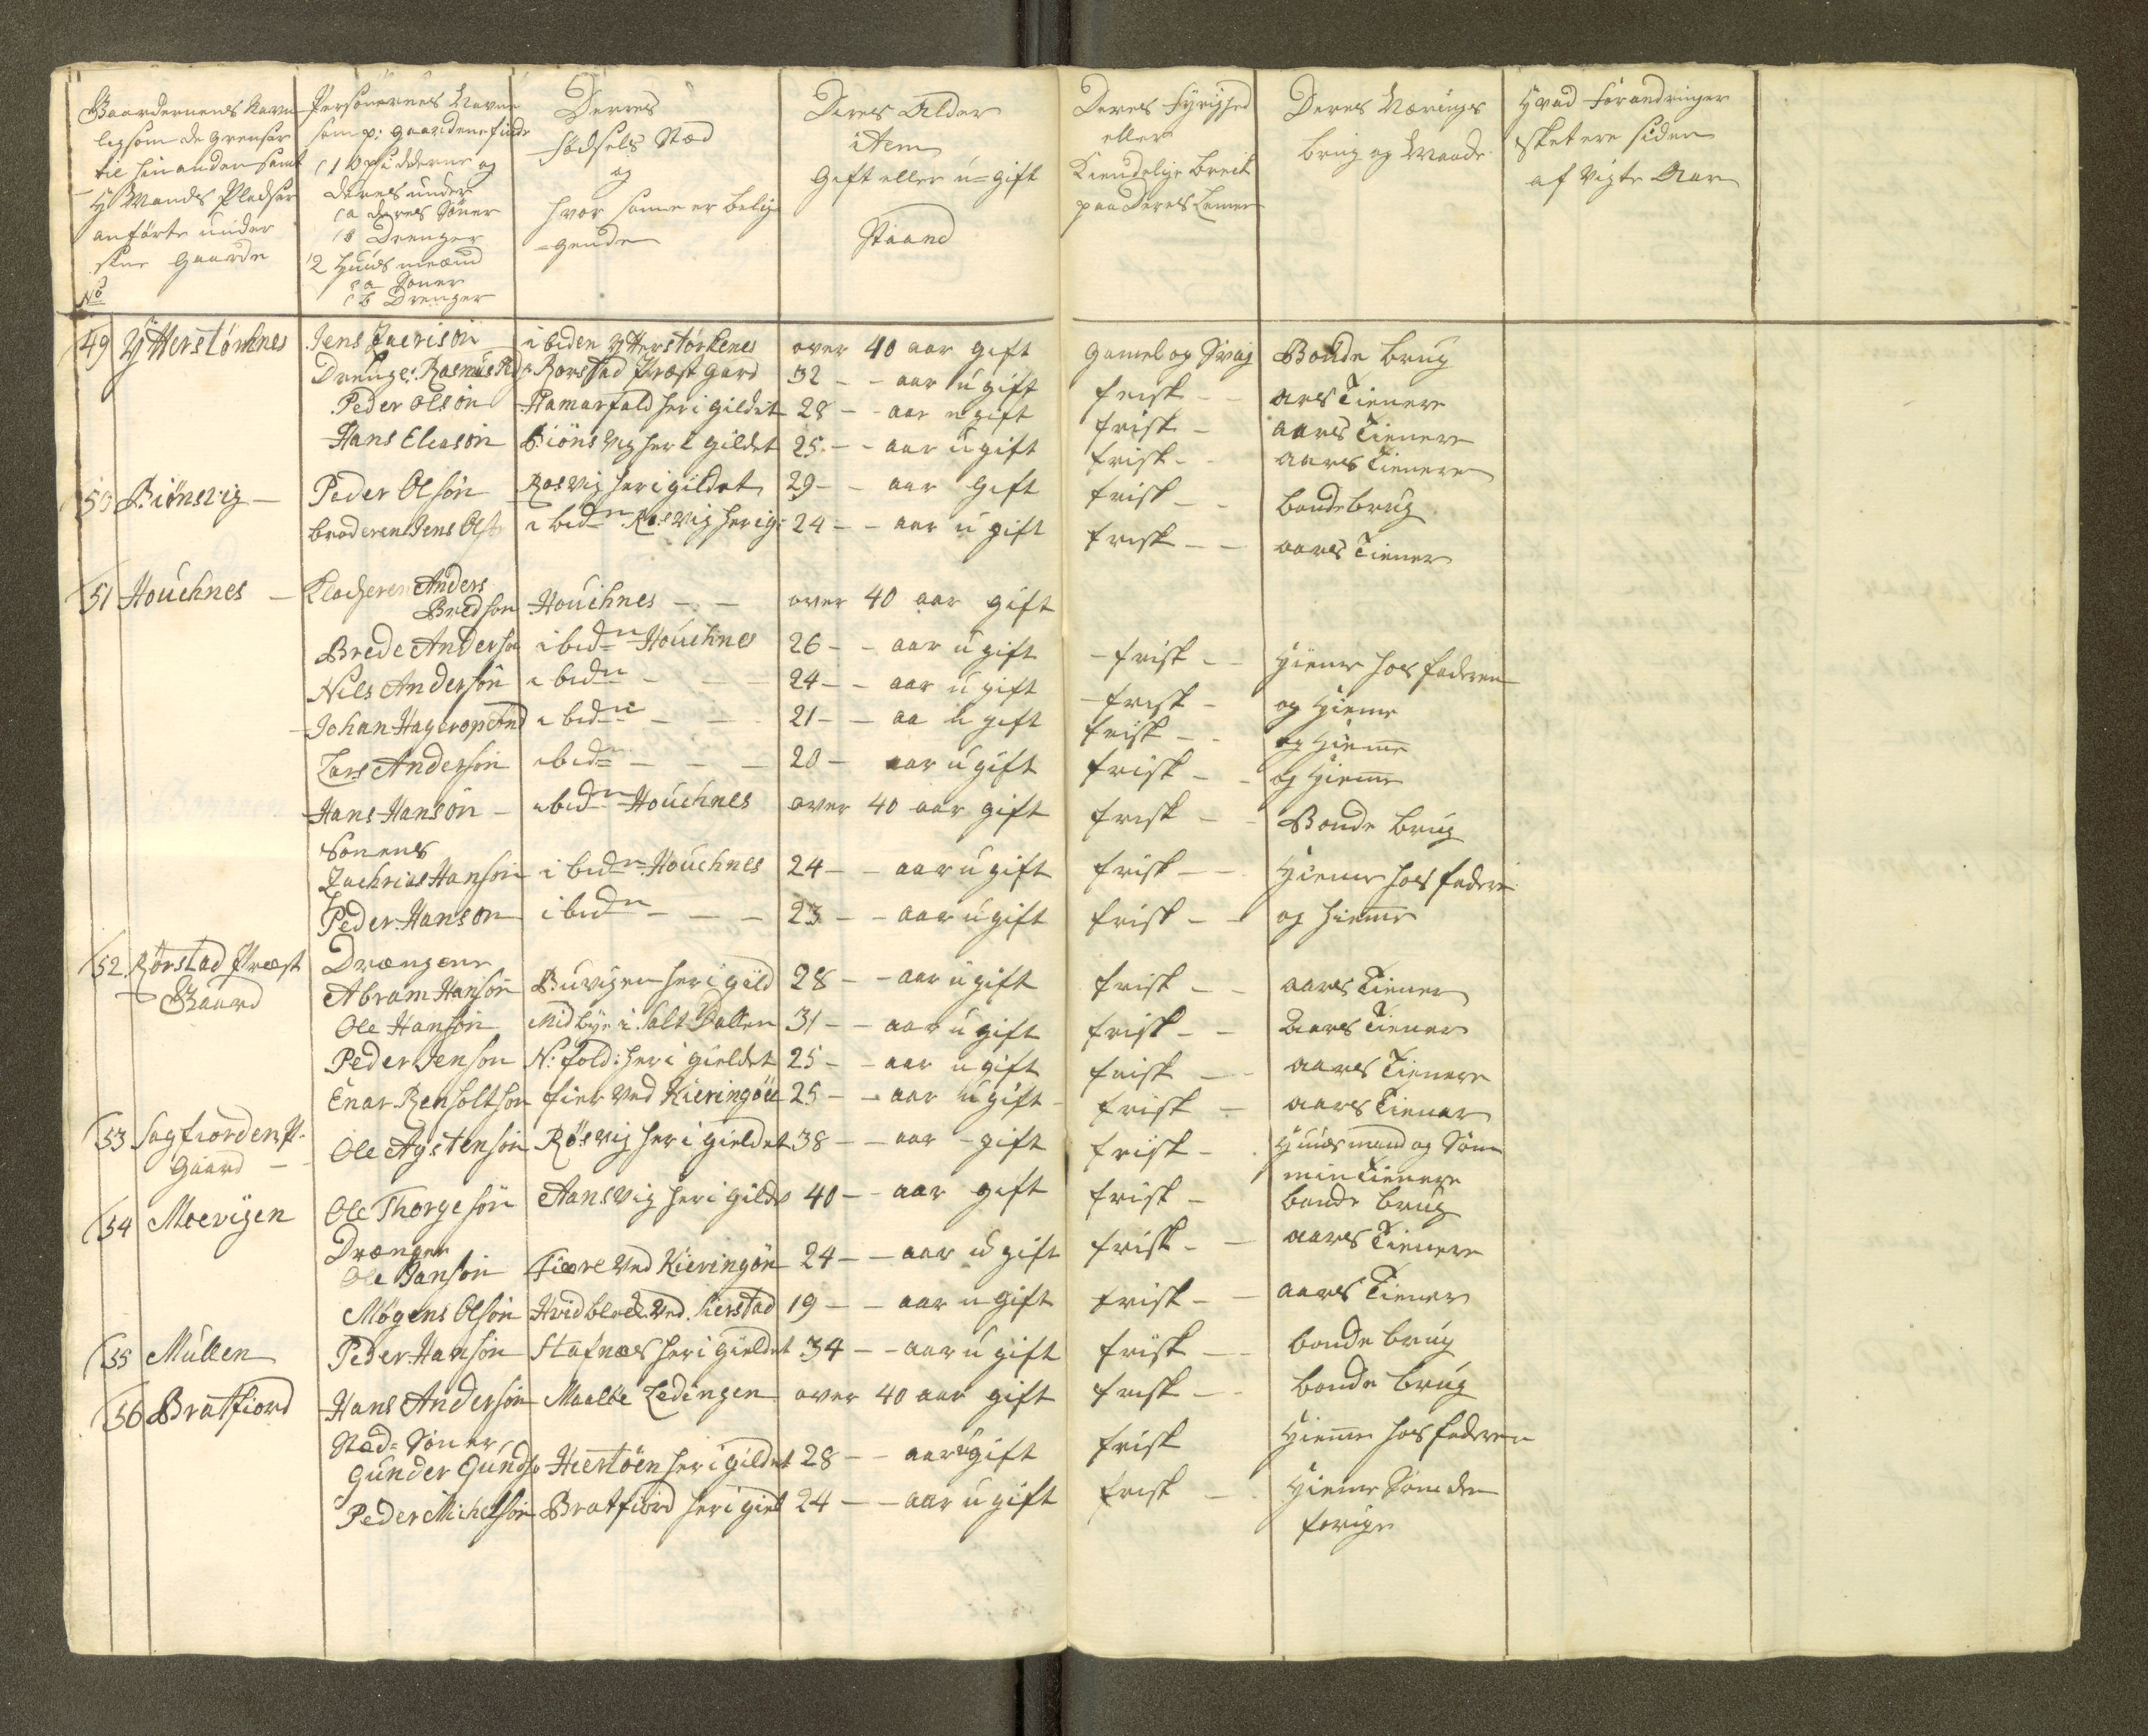 Gaardernes Navn
ligsom de grensser
til hin anden samt
H Mands Pladser
anførte under
sine Gaarde
No
Personernes Navne
som p: gaardene finde
(1 Opsidderne og
deres under
(a deres Sønner
(b Drenger
(2 Huusmænd
(a Sønner
(b Drenger
Deres
fødsels Stæd
og
hvor samme er belig
=gende
Deres Alder
item
Gift eller u=gift
Stand
Deres Fyrighed
eller
Kiendelige breck
paa Deres Lemmer
Deres Nærings
brug og Maade
Hvad forandringer
skeet ere siden
af vigte Aar
49 Ytterstørknes Jens Zacrisøn ibiden Ytterstørkenes over 40 aar gift gamel og Svag Bonde brug
Drenge: Rasmus Rorstad Præstgard 32 - - aar u gift frisk - - ars Tienere
Peder Olsøn Hamarfald her i gildet 28 - - aar u gift frisk - aars Tienere
Hans Eleasøn Biönsvig her i gildet 25 - - aar u gift frisk - aars Tienere
50 Biönsvig - Peder Olsøn Rosvig her i gildet 29 - - aar gift frisk - - bonde brug
broderen Jens Ols ibidn Røsvig her i g: 24 - - aar u gift frisk - - aars Tiener
51 Houchnes - Klocheren Anders
Bredson Houchnes - - over 40 aar gift
Brede Anderson ibidn Houchnes 26 - - aar u gift - frisk - - Hieme hos faderen
Nils Andersøn ibidn - - 24 - - aar u gift - frisk - og Hieme
Johan Hagerop And ibidn - - 21 - - aa u gift frisk - - og Hieme
Lars Andersøn ibidn - - - 20 - aar u gift frisk - - og Hieme
Hans Hansøn - ibidn Houchnes over 40 aar gift frisk - - Bonde brug
Sønens
Zachrias Hansøn ibidn Houchnes 24 - - aar u gift frisk - - Hieme hos fader
Peder Hanson ibidn - - - 23 - - aar u gift frisk - - og hieme
52 Rørstad Præst
Gaard
Drængene
Abram Hansøn Buvigen her i gild 28 - - aar u gift frisk - - aars Tiener
Ole Hansøn Midbye i Salt Dallen 31 - - aar u gift frisk - - Aars Tiener
Peder Jenson N: fold: her i gieldet 25 - - aar u gift frisk - - aars Tienere
Enar Renholtson fier ved Kieringøe 25 - - aar u gift - frisk - aars Tiener
53 Sagfiorden P.
Gaard - - Ole Agstensøn Røsvig her i gieldet 38 - - aar - gift frisk - Huusmand og Søm
min Tienere
54 Moevigen Ole Thorgesøn Aansvig her i gild 40 - - aar gift frisk - bonde brug
Drænger
Ole Jansøn Fiære ved Kieringøe 24 - - aar u gift frisk - - aars Tienere
Mogens Olsøn Hvidblode ved Kierstad 19 - - aar u gift frisk - - aars Tiener
55 Mullen Peder Hansøn Stafnæs her i gieldet 34 - - aar u gift frisk - - bonde brug
56 Bratfiord Hans Andersøn Ledingen over 40 aar gift frisk - - bonde brug
Sted=Søner
Gunder Gunds Hiertøen her i gildet 28 - - aar ugift frisk Hieme hos faderen
Peder Michelsøn Bratfiord her i gield 24 - - aar u gift frisk - Hieme Som den
forige